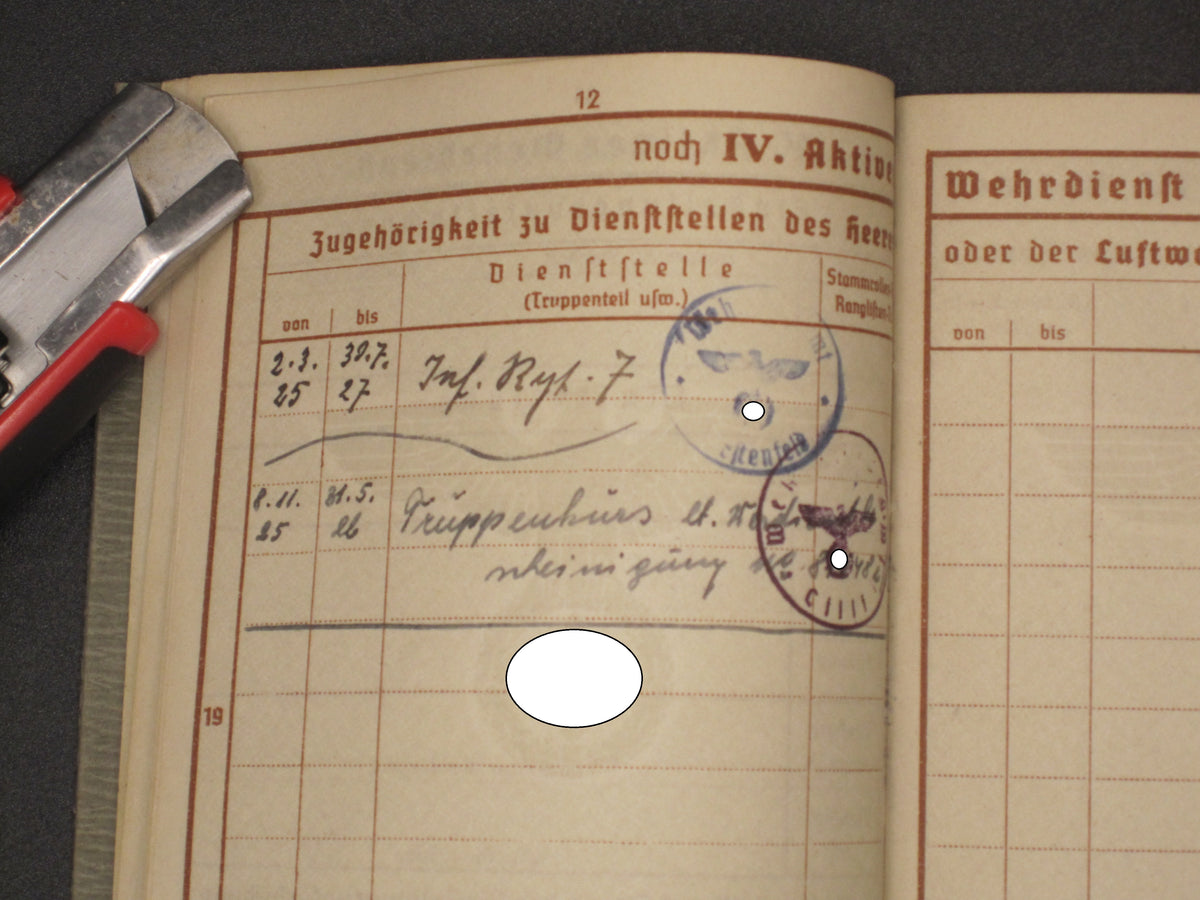 12
noch IV. Aktive
Zugehörigkeit zu Dienststellen des Heere
Dienststelle
(Truppenteil usw.)
Stammrollen-
Ranglisten-
von bis
2.3. 30.7.
25 27
Inf. Rgt. 7
8.11. 31.5.
25 26
Truppenkurs lt.
scheinigung
19
Weh
stenfeld
Cilli
Wehrdienst
oder der Luftwa
von bis